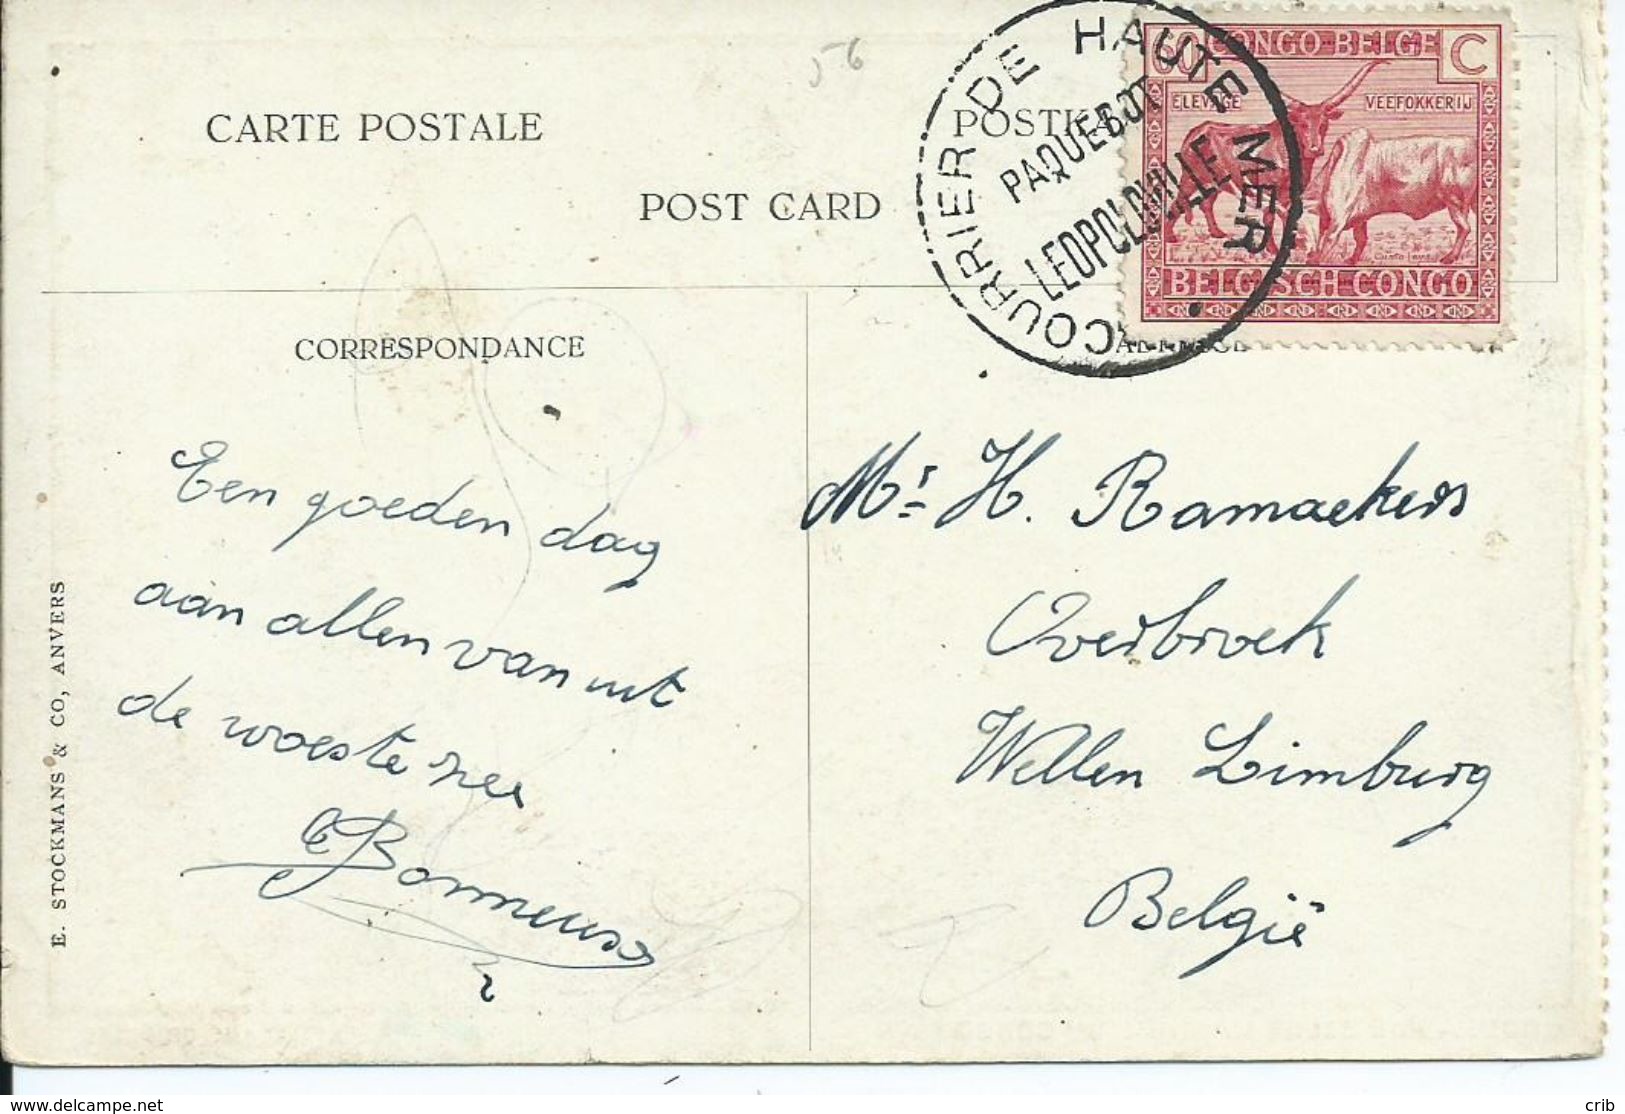 56
CARTE POSTALE
POSTKA
POST CARD
COURRIER DE HAUTE MER
PAQUEBOT
LEOPOLDVILLE
60 CONGO BELGE C
ELEVAGE VEEFOKKERIJ
BELGISCH CONGO
CORRESPONDANCE
Een goeden dag
aan allen van uit
de woeste zee
Mr. H. Ramaekers
Overbroek
Wellen Limburg
België
E. STOCKMANS & CO, ANVERS
www.delcampe.net
crib